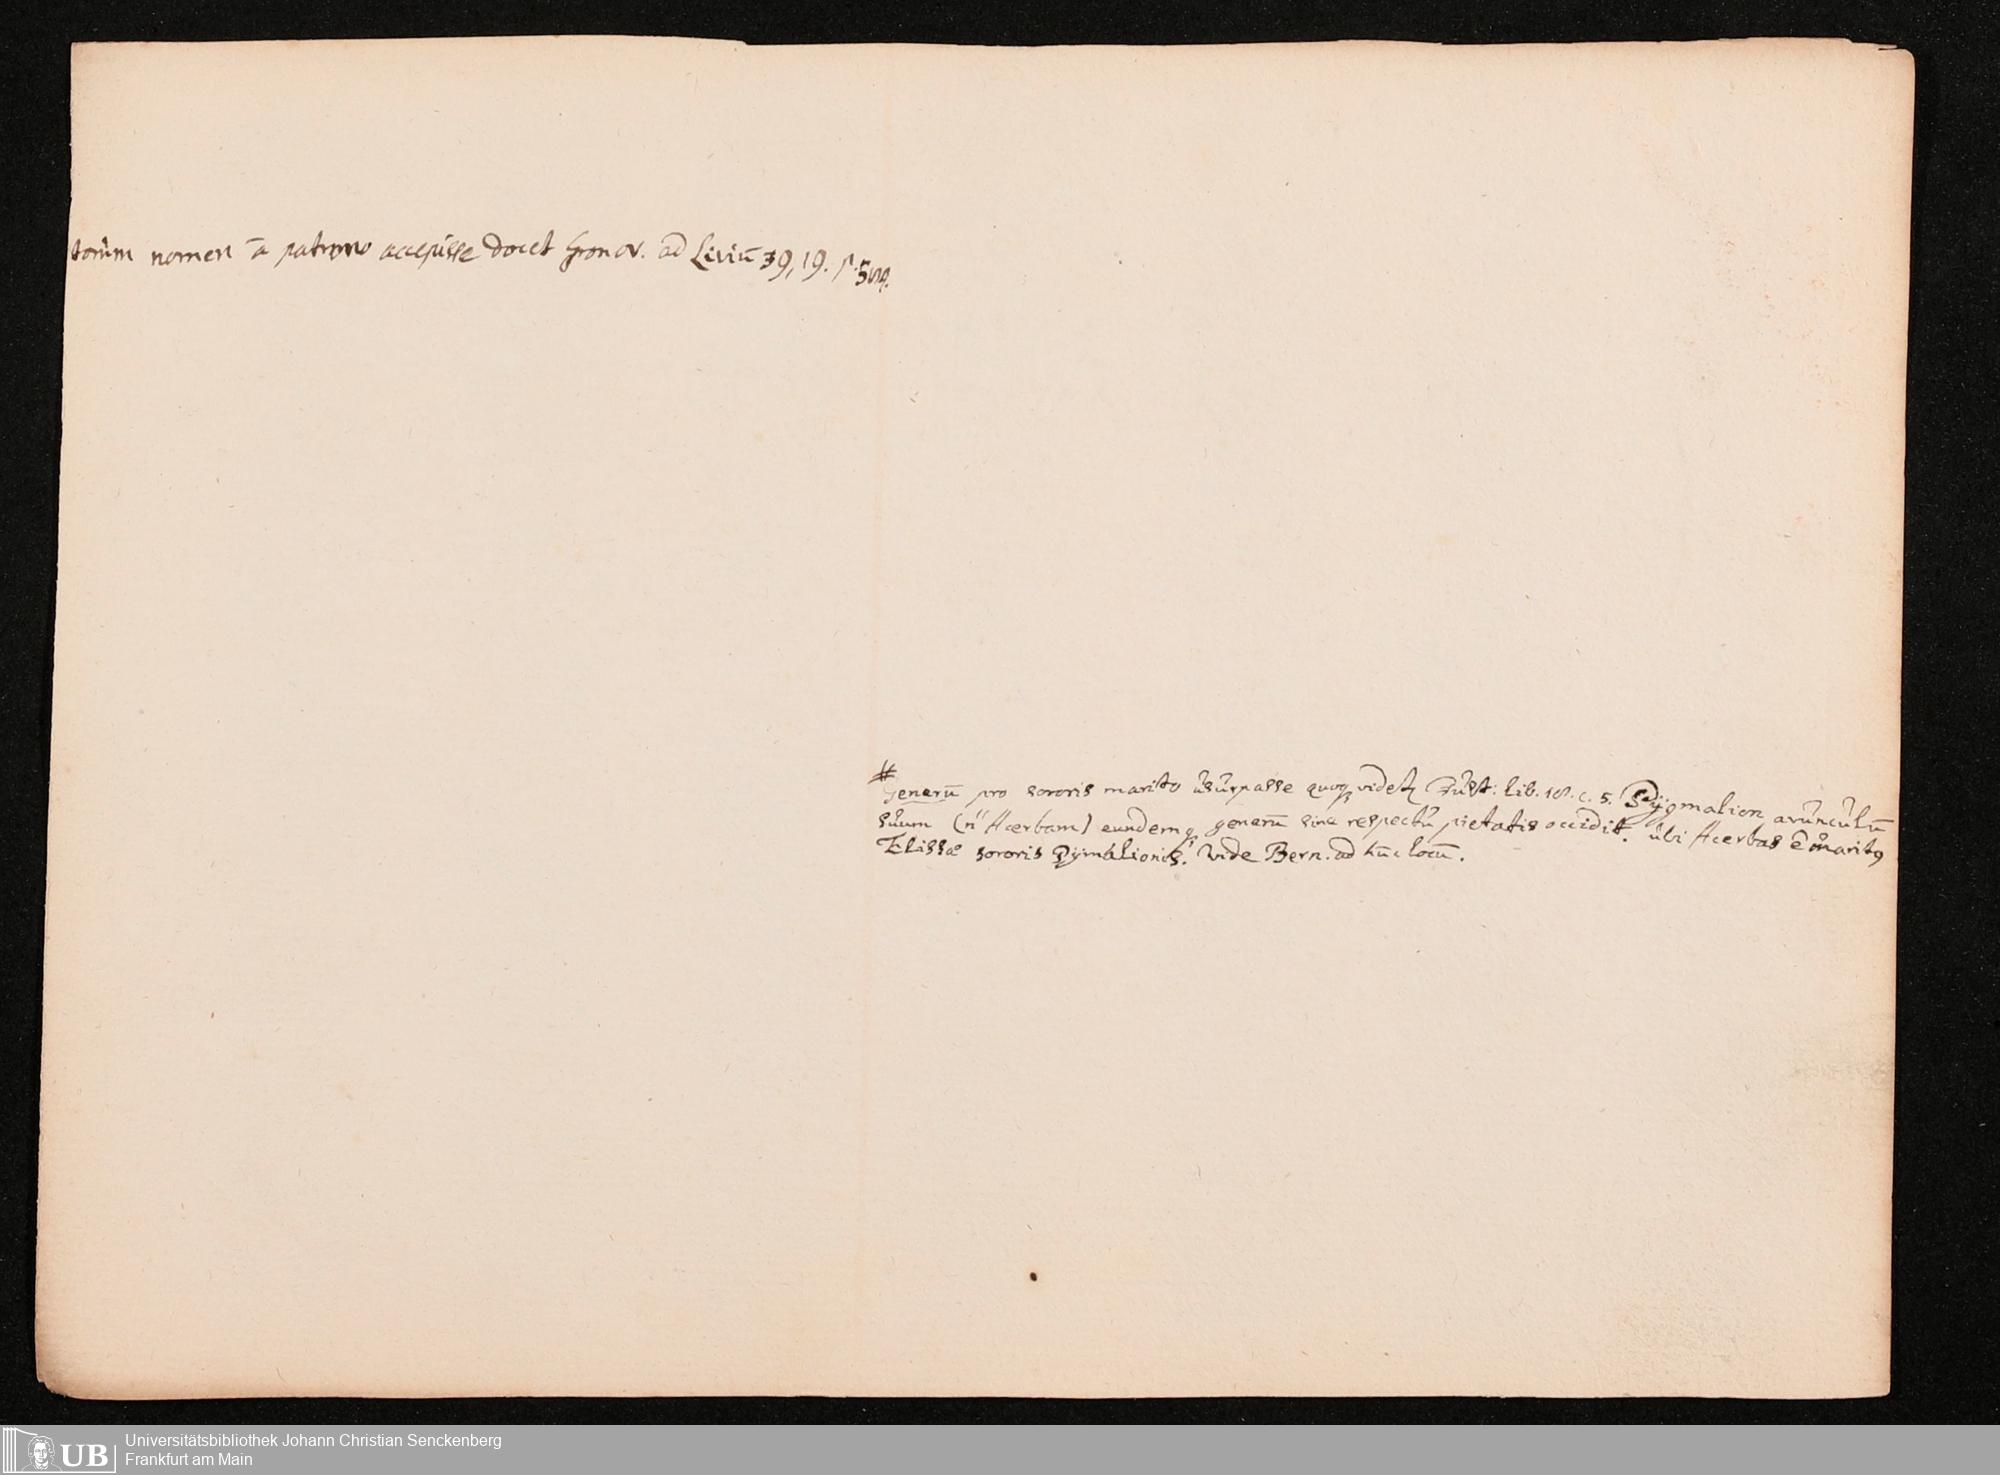 torum nomen ā patrono accepisse docet Gronov. ad Liviū 39, 19. p.
# Generū pro sororis marito usurpasse quoq videtʒ Just: lib. 18. c. 5. Pygmalion avunculū
suum (n Acerbam) eundemq generū sine respectu pietatis occidit. ubi Acerbas ē maritꝰ
Elissæ sororis Pymalionis. Vide Bern. ad hūc locū.
UB
Universitätsbibliothek Johann Christian Senckenberg
Frankfurt am Main